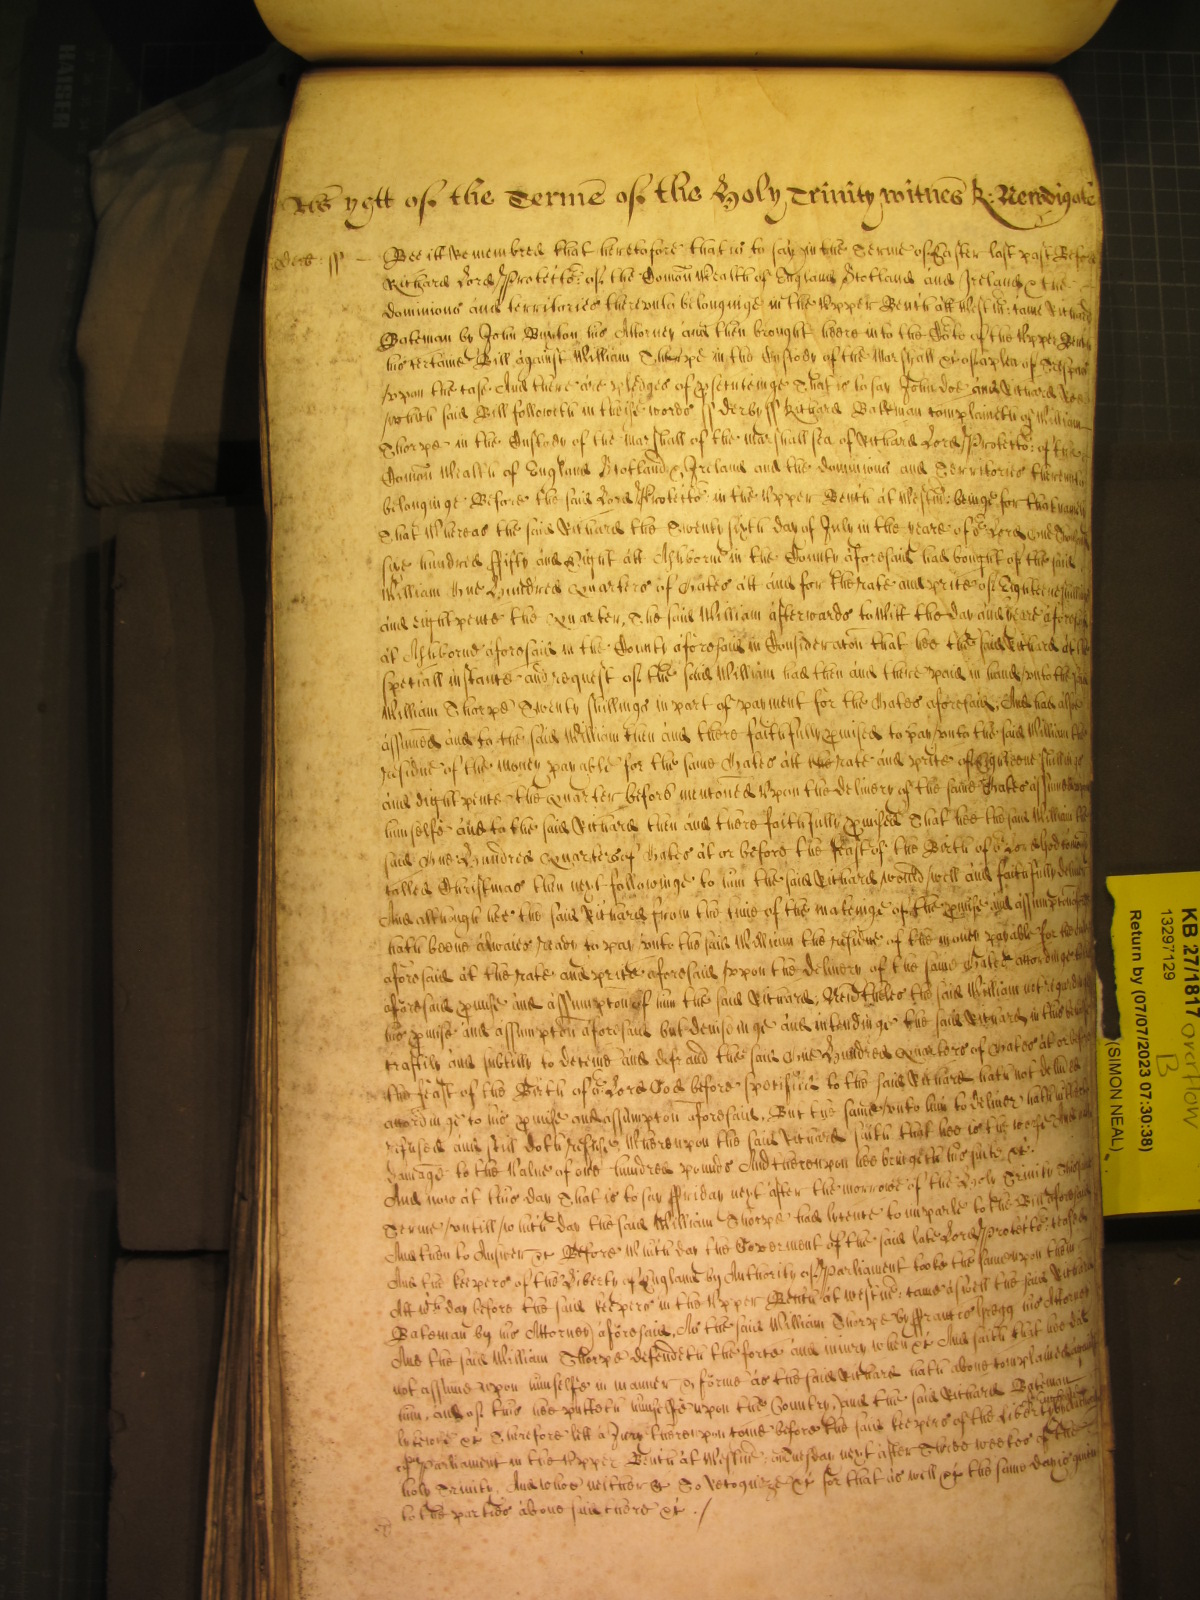 yett of the Terme of the Holy Trinity witnes R: Newdigate
Derb: ss Bee itt remembred that heretofore that is to say in the Terme of Easter last past Before
Richard Lord Protector of the Comon Wealth of England Scotland and Ireland & the
dominions and territories thereunto belonginge in the Upper Bench att Westm: came Richard
Bateman by John Buxton his Attorney and then brought heere into the Court of the Upper Bench
his certaine Bill against William Thorpe in the Custody of the Marshall &c of a plea of Trespas
upon the case And there are pledges of prosecuteinge That is to say John doe and Richard Roe
which said Bill followeth in theise words ss derby ss Richard Bateman complaineth of William
Thorpe in the Custody of the marshall of the marshallsea of Richard Lord Protector of the
Comon Wealth of England Scotland & Ireland and the dominions and Territories thereunto
belonginge Before the said Lord Protector in the Upper Bench at Westm: beinge for that namely
That Whereas the said Richard the Twenty sixth day of July in the yeare of or Lord One Thousand
six hundred ffifty and Eight att Ashborne in the County aforesaid had bought of the said
William One Hundred Quarters of Oates att and for the rate and price of Eighteene shillings
and eight pence the Quarter, The said William afterwards to Witt the day and yeare aforesaid
at Ashborne aforesaid in the County aforesaid in Consideracon that hee the said Richard at the
speciall instance and request of the said William had then and there paid in hand unto the said
William Thorpe Twenty shillings in part of payment for the Oates aforesaid, And had also
assumed and to the said William then and there faithfully promised to pay unto the said William the
residue of the money payable for the same Oates att the rate and price of Eighteene shillings
and Eight pence the Quarter before mentoned Upon the delivery of the same Oates assumed upon
himselfe and to the said Richard then and there faithfully promised That hee the said William the
said One Hundred Quarters of Oates at or before the feast of the Birth of or Lord God
called Christmas then next followinge to him the said Richard would well and faithfully deliver
And although hee the said Richard from the time of the makeinge of the promise and assumpton
hath beene alwaies ready to pay unto the said William the residue of the money payable for the
aforesaid at the rate and price aforesaid upon the delivery of the same Oates accordinge to
aforesaid promise and assumpton of him the said Richard, Nevertheles the said William not regardinge
his promise and assumpton aforesaid but deviseinge and intendinge the said Richard in this behalfe
craftily and subtilly to deceive and defraud the said One Hundred Quarters of Oates at or before
the feast of the Birth of or Lord God before specified to the said Richard hath not delivered
accordinge to his promise and assumpton aforesaid, But the same unto him to deliver hath
refused and still doth refuse Whereupon the said Richard saith that hee is the worse and
damage to the Value of one hundred pounds And thereupon hee bringeth his suite &c:
And now at this day That is to say ffriday next after the morrowe of the Holy Trinity this same
Terme untill which day the said William Thorpe had lycence to imparle to the Bill aforesaid
And then to Answer &c Before Which day the Goverment of the said late Lord Protector ceased
And the keepers of the Liberty of England by Authority of Parliament tooke the same upon them
Att wch day before the said keepers in the Upper Bench at westm: came aswell the said Richard
Bateman by his Attorney aforesaid, As the said William Thorpe by ffrancis Gregg his Attorney
And the said William Thorpe defendeth the force and iniury when &c And saith that hee did
not assume upon himselfe in manner & forme as the said Richard hath above complained against
him, and of this hee putteth himselfe upon the Country, and the said Richard Bateman
likewise &c Therefore lett a Jury thereupon come before the said keepers of the Liberty
of Parliament in the Upper Bench at Westm: wednesday next after Three weekes of the
holy Trinity, And who neither &c To recognize &c for that as well &c the same day is given
to the parties above said there &c ./
KB 27/1817 overflow
13297129 B
Return by (07/07/2023 07:30:38)
(SIMON NEAL)